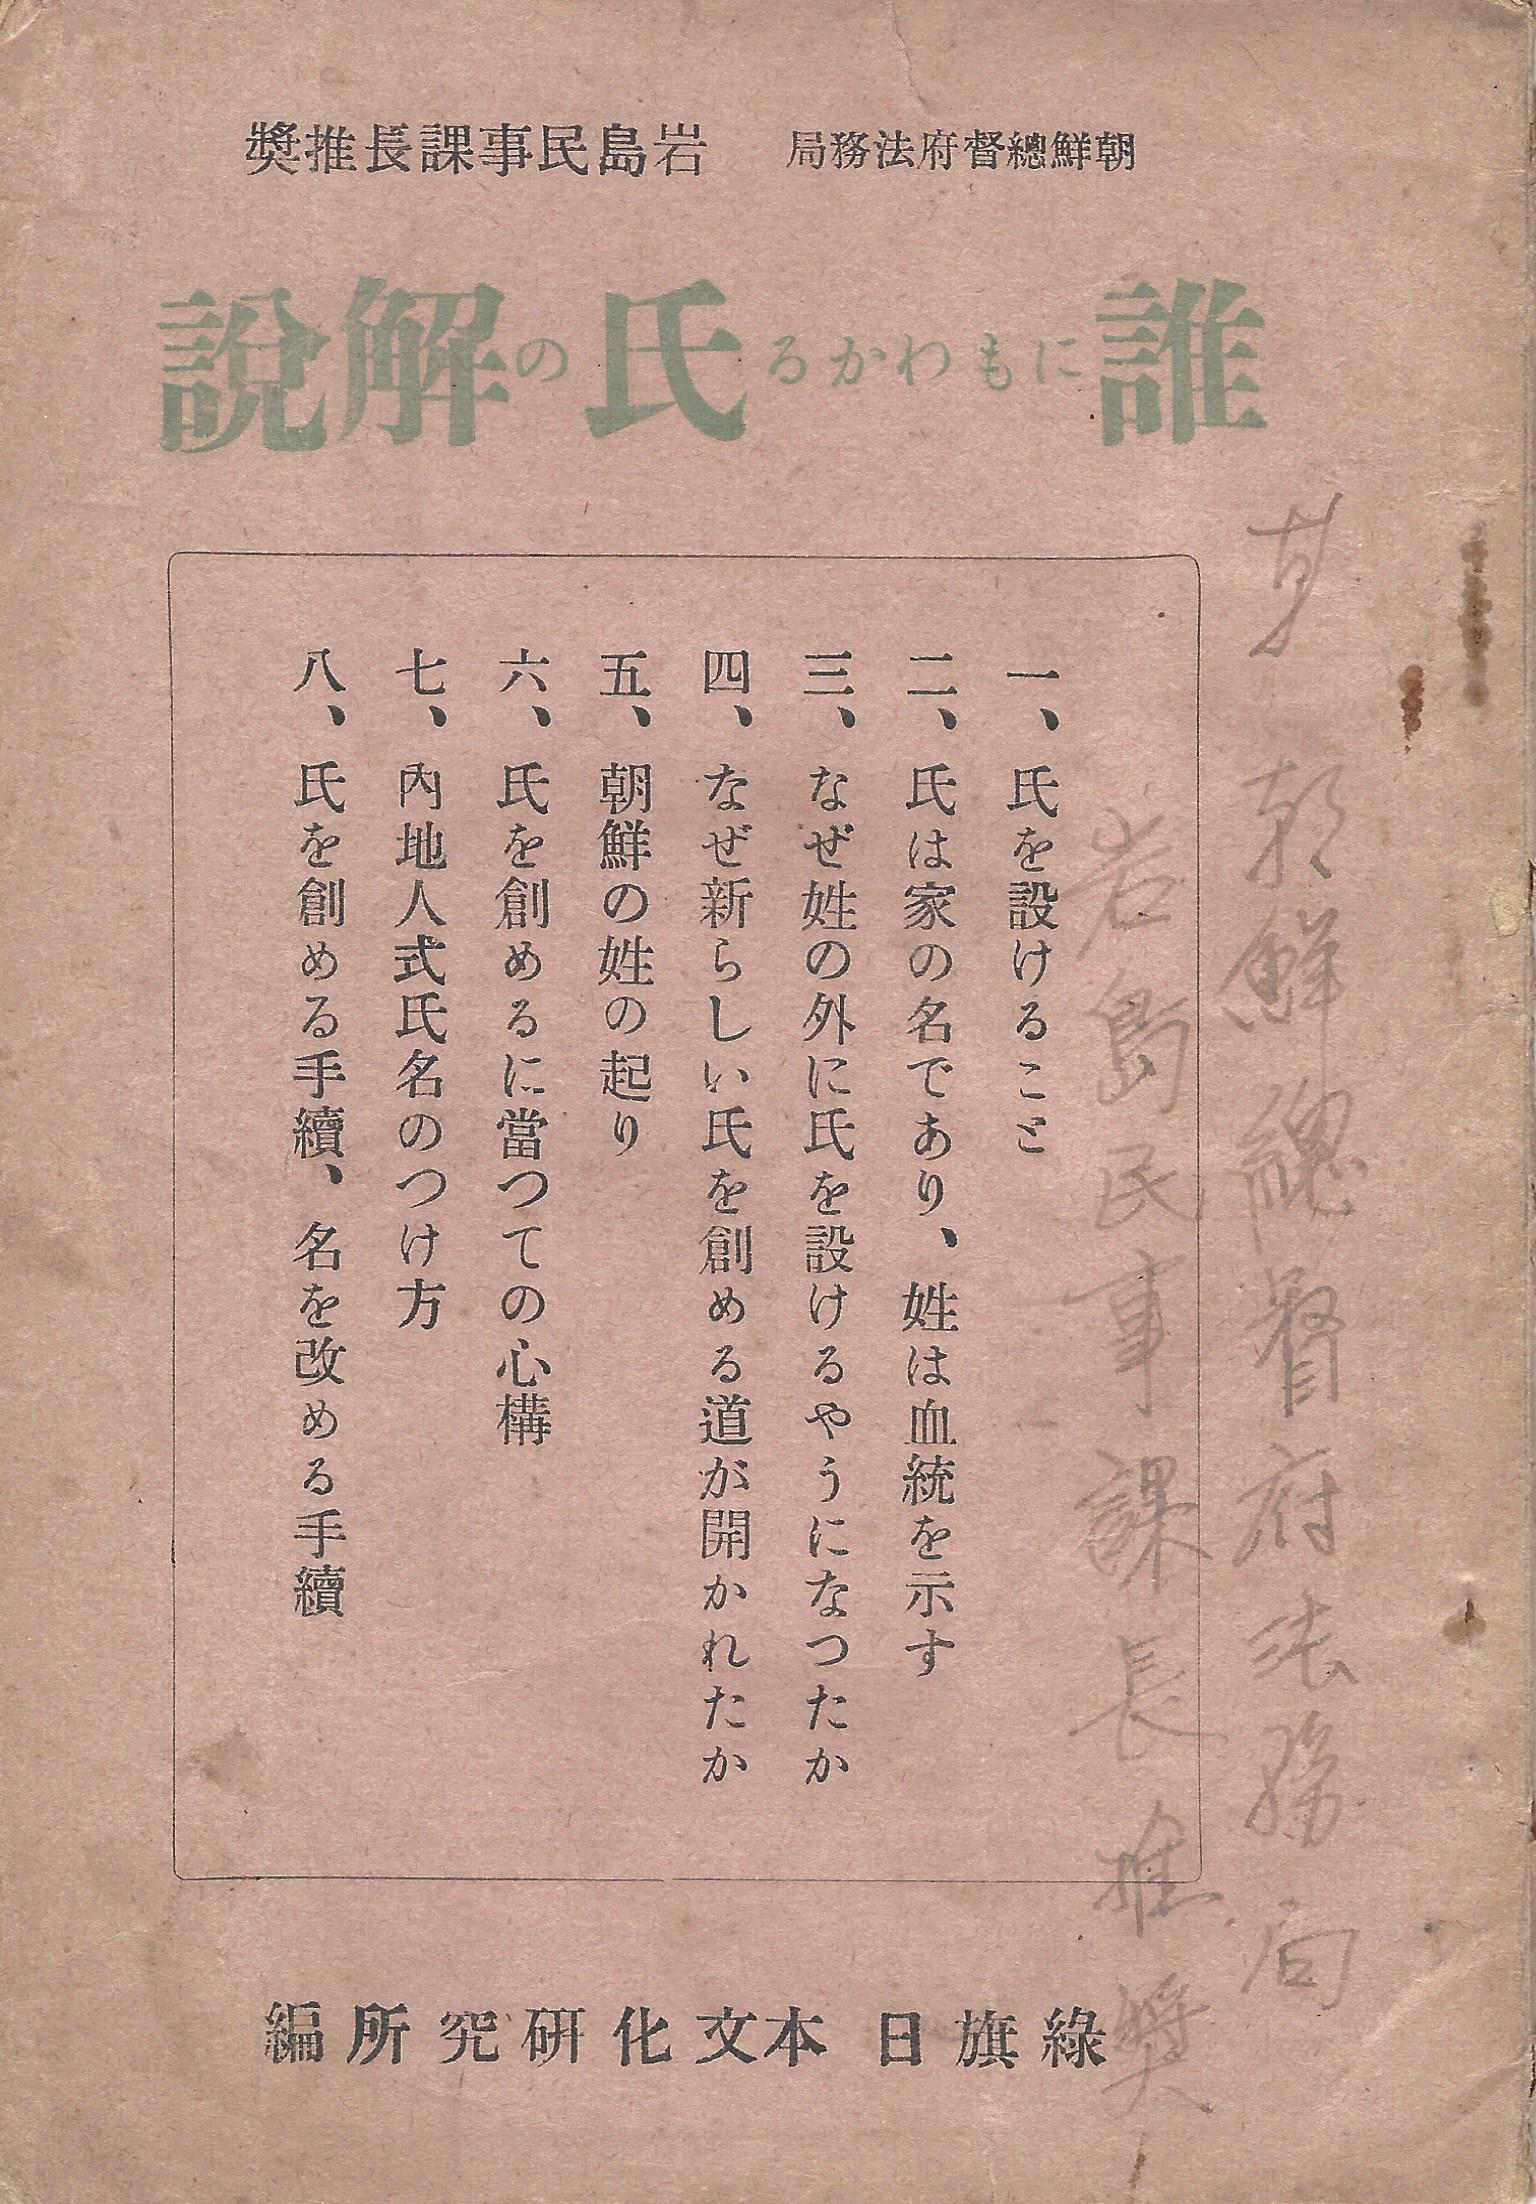 朝鮮總督府法務局 岩島民事課長推奬
誰にもわかる氏の解說
一、氏を設けること
二、氏は家の名であり、姓は血統を示す
三、なぜ姓の外に氏を設けるやうになつたか
四、なぜ新らしい氏を創める道が開かれたか
五、朝鮮の姓の起り
六、氏を創めるに當つての心構
七、內地人式氏名のつけ方
八、氏を創める手續、名を改める手續
綠旗日本文化硏究所編
朝鮮總督府法務局
岩島民事課長推奬